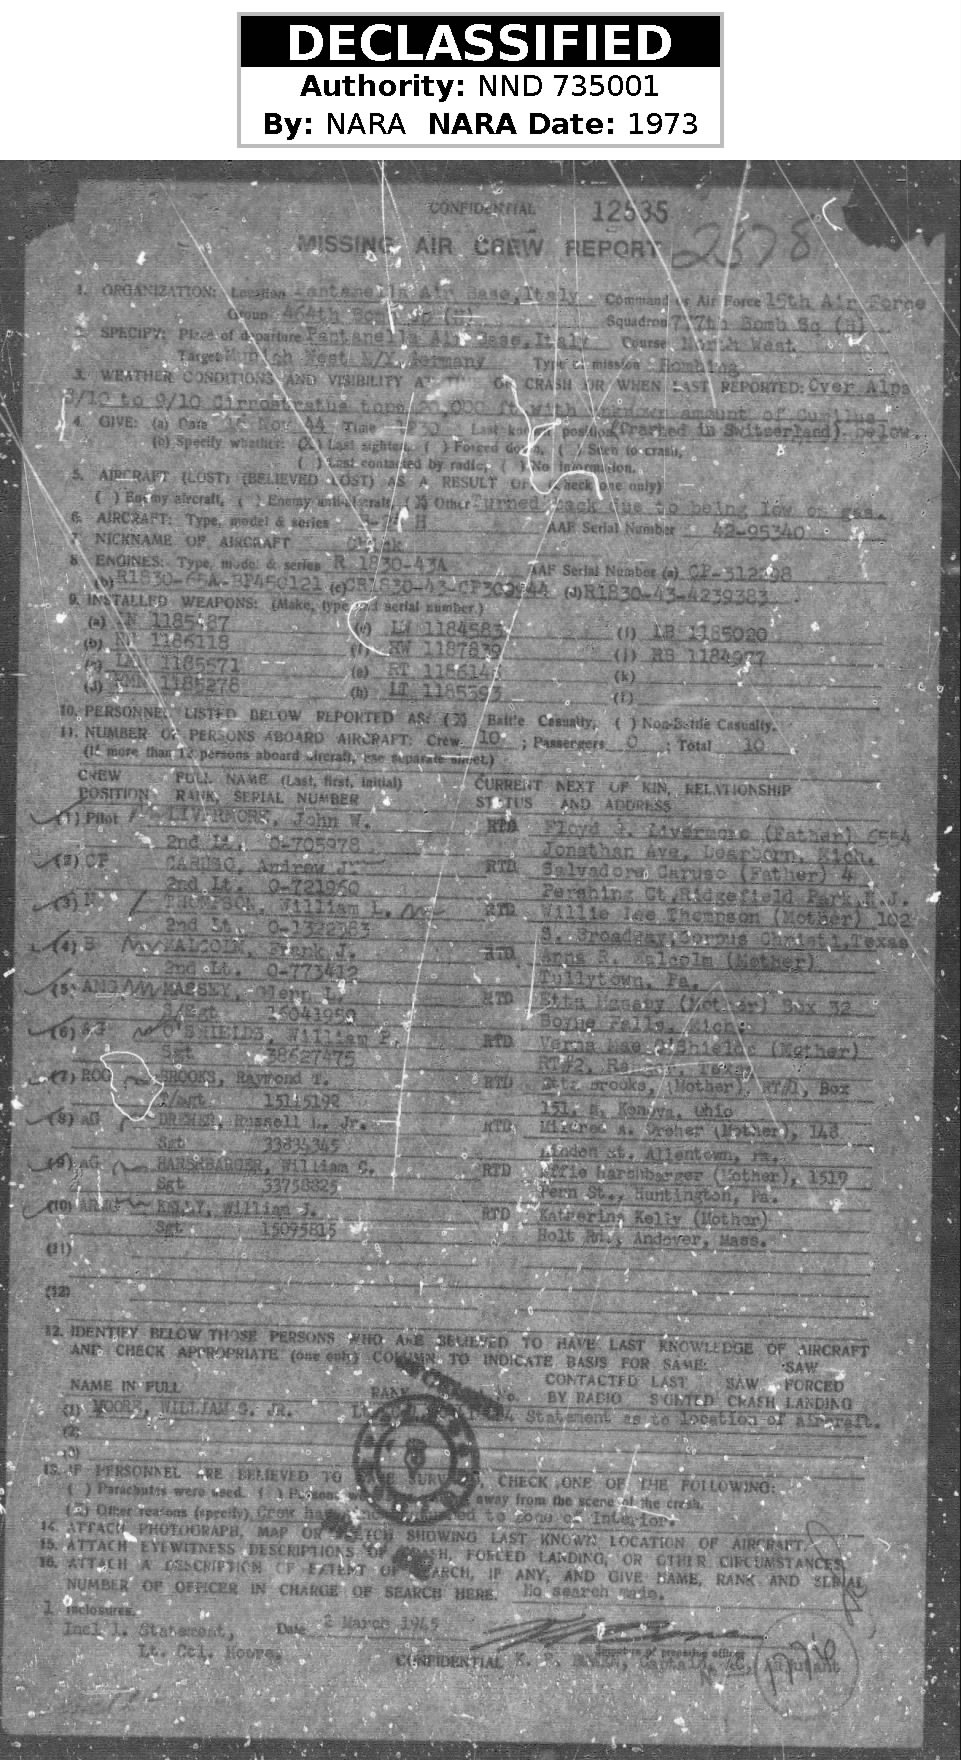 DECLASSIFIED
Authority: NND 735001
By: NARA NARA Date: 1973
CONFIDENTIAL 12535
MISSING AIR CREW REPORT 2378
1. ORGANIZATION: Location Pantanella Air Base, Italy Command or Air Force 15th Air Force
Group 464th Bomb Gp (H) Squadron 777th Bomb Sq (H)
2. SPECIFY: Place of departure Pantanella Air Base, Italy Course North West
Target Munich West M/Y, Germany Type of mission Bombing
3. WEATHER CONDITIONS AND VISIBILITY AT TIME OF CRASH OR WHEN LAST REPORTED: Over Alps
8/10 to 9/10 Cirrostratus tops 20,000 ft with unknown amount of Cumulus
4. GIVE: (a) Date 16 Nov 44 Time 1330 Last known position (Crashed in Switzerland). below.
(b) Specify whether: (X) Last sighted, ( ) Forced down, ( ) Seen to crash,
( ) Last contacted by radio, ( ) No information.
5. AIRCRAFT (LOST) (BELIEVED LOST) AS A RESULT OF (Check one only)
( ) Enemy aircraft, ( ) Enemy anti-aircraft, (X) Other Turned back due to being low on gas.
6. AIRCRAFT: Type, model & series H AAF Serial Number 42-95340
7. NICKNAME OF AIRCRAFT
8. ENGINES: Type, model & series R 1830-43A AAF Serial Number (a) CP-312298
(b) R1830-65A-BP450121 (c) CR1830-43-CP302944 (d) R1830-43-4239383
9. INSTALLED WEAPONS: (Make, type and serial number)
(a) 1185487 (e) LW 1184583 (i) LB 1185020
(b) 1186118 (f) RW 1187839 (j) RB 1184977
(c) 1185571 (g) RT 118614 (k)
(d) 1185278 (h) LT 1185393 (l)
10. PERSONNEL LISTED BELOW REPORTED AS: (X) Battle Casualty, ( ) Non-Battle Casualty.
11. NUMBER OF PERSONS ABOARD AIRCRAFT: Crew 10 ; Passengers 0 ; Total 10
(If more than 12 persons aboard aircraft, use separate sheet.)
CREW FULL NAME (Last, first, initial) CURRENT NEXT OF KIN, RELATIONSHIP
POSITION RANK, SERIAL NUMBER STATUS AND ADDRESS
(1) Pilot LIVERMORE, John W. RTD Floyd J. Livermore (Father) 6554
2nd Lt. O-705978 Jonathan Ave, Dearborn, Mich.
(2) CP CARUSO, Andrew J RTD Salvadore Caruso (Father) 4
2nd Lt. O-721960 Pershing Ct, Ridgefield Park, N.J.
(3) N THOMPSON, William L. RTD Willie Lee Thompson (Mother) 102
2nd Lt. O-1322383 S. Broadway, Corpus Christi, Texas
(4) B MALCOLM, Frank J. RTD Anna R. Malcolm (Mother)
2nd Lt. O-773412 Tullytown, Pa.
(5) MASSEY, Glenn L. RTD Etta Massey (Mother) Box 32
S/Sgt 15041950 Boyne Falls, Mich.
(6) O'SHIELDS, William P. RTD Verna Mae O'Shields (Mother)
Sgt 38627475 RT#2, Texas
(7) ROG BROOKS, Raymond T. RTD Brooks, (Mother), RT#1, Box
15145192 151, Kenova, Ohio
(8) AG DREHER, Russell L. Jr. RTD Mildred A. Dreher (Mother), 148
Sgt 33834345 Linden St. Allentown, Pa.
(9) AG HARSHBARGER, William C. RTD Effie Harshbarger (Mother), 1519
Sgt 33758825 Fern St., Huntington, Pa.
(10) KELLY, William J. RTD Katherine Kelly (Mother)
Sgt 15095815 Holt Rd., Andover, Mass.
(11)
(12)
12. IDENTIFY BELOW THOSE PERSONS WHO ARE BELIEVED TO HAVE LAST KNOWLEDGE OF AIRCRAFT
AND CHECK APPROPRIATE (one only) COLUMN TO INDICATE BASIS FOR SAME: SAW
CONTACTED LAST SAW FORCED
NAME IN FULL RANK BY RADIO SIGHTED CRASH LANDING
(1) MOORE, WILLIAM S. JR. Statement as to location of aircraft.
(2)
(3)
13. IF PERSONNEL ARE BELIEVED TO HAVE SURVIVED, CHECK ONE OF THE FOLLOWING:
( ) Parachutes were used. ( ) Persons away from the scene of the crash.
(X) Other reasons (specify) Crew to Zone of Interior.
14. ATTACH PHOTOGRAPH, MAP OR SKETCH SHOWING LAST KNOWN LOCATION OF AIRCRAFT.
15. ATTACH EYEWITNESS DESCRIPTIONS OF CRASH, FORCED LANDING, OR OTHER CIRCUMSTANCES
16. ATTACH A DESCRIPTION OF EXTENT OF SEARCH, IF ANY, AND GIVE NAME, RANK AND SERIAL
NUMBER OF OFFICER IN CHARGE OF SEARCH HERE. No search made.
1 Inclosures.
Incl 1. Statement, Date 2 March 1945
Lt. Col. Moore. Signature of preparing officer
CONFIDENTIAL Captain, Adjutant